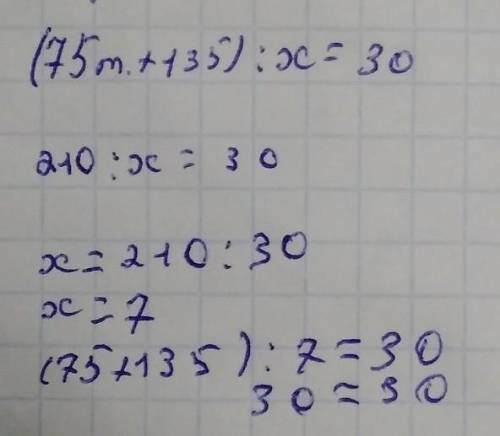 (75т.+135):x=30
210:x=30
x=210:30
x=7
(75+135):7=30
30=30